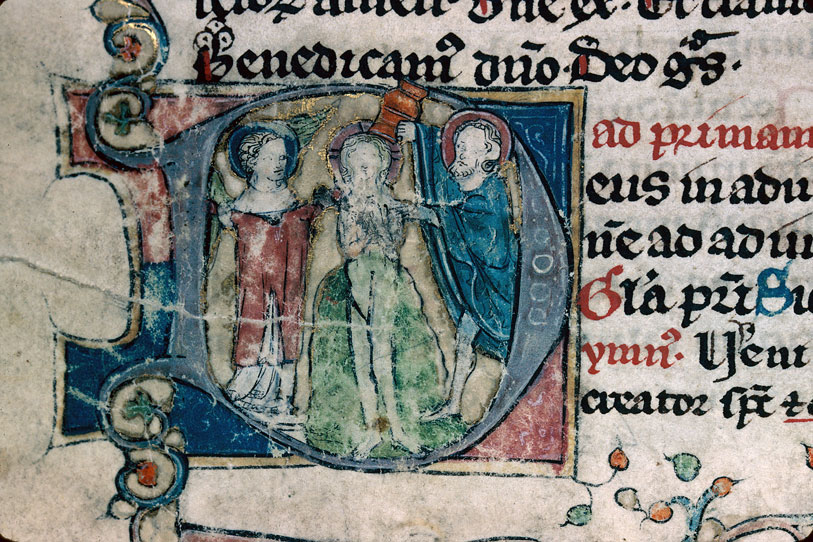 Benedicamꝰ dño Deo gr̃s.
ad primam
eus in adiu
ñe ad adiu
Glã pr̃i Si
ymnꝰ. Ueni
creator sp̃c